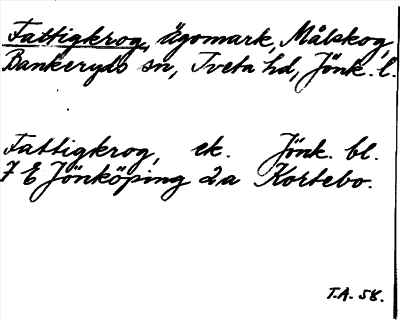 Fattigkrog, ägomark, Målskog,
Bankeryds sn, Tveta hd, Jönk. l.
Fattigkrog, ek. Jönk. bl.
7 E Jönköping 2a Kortebo.
T.A. 58.